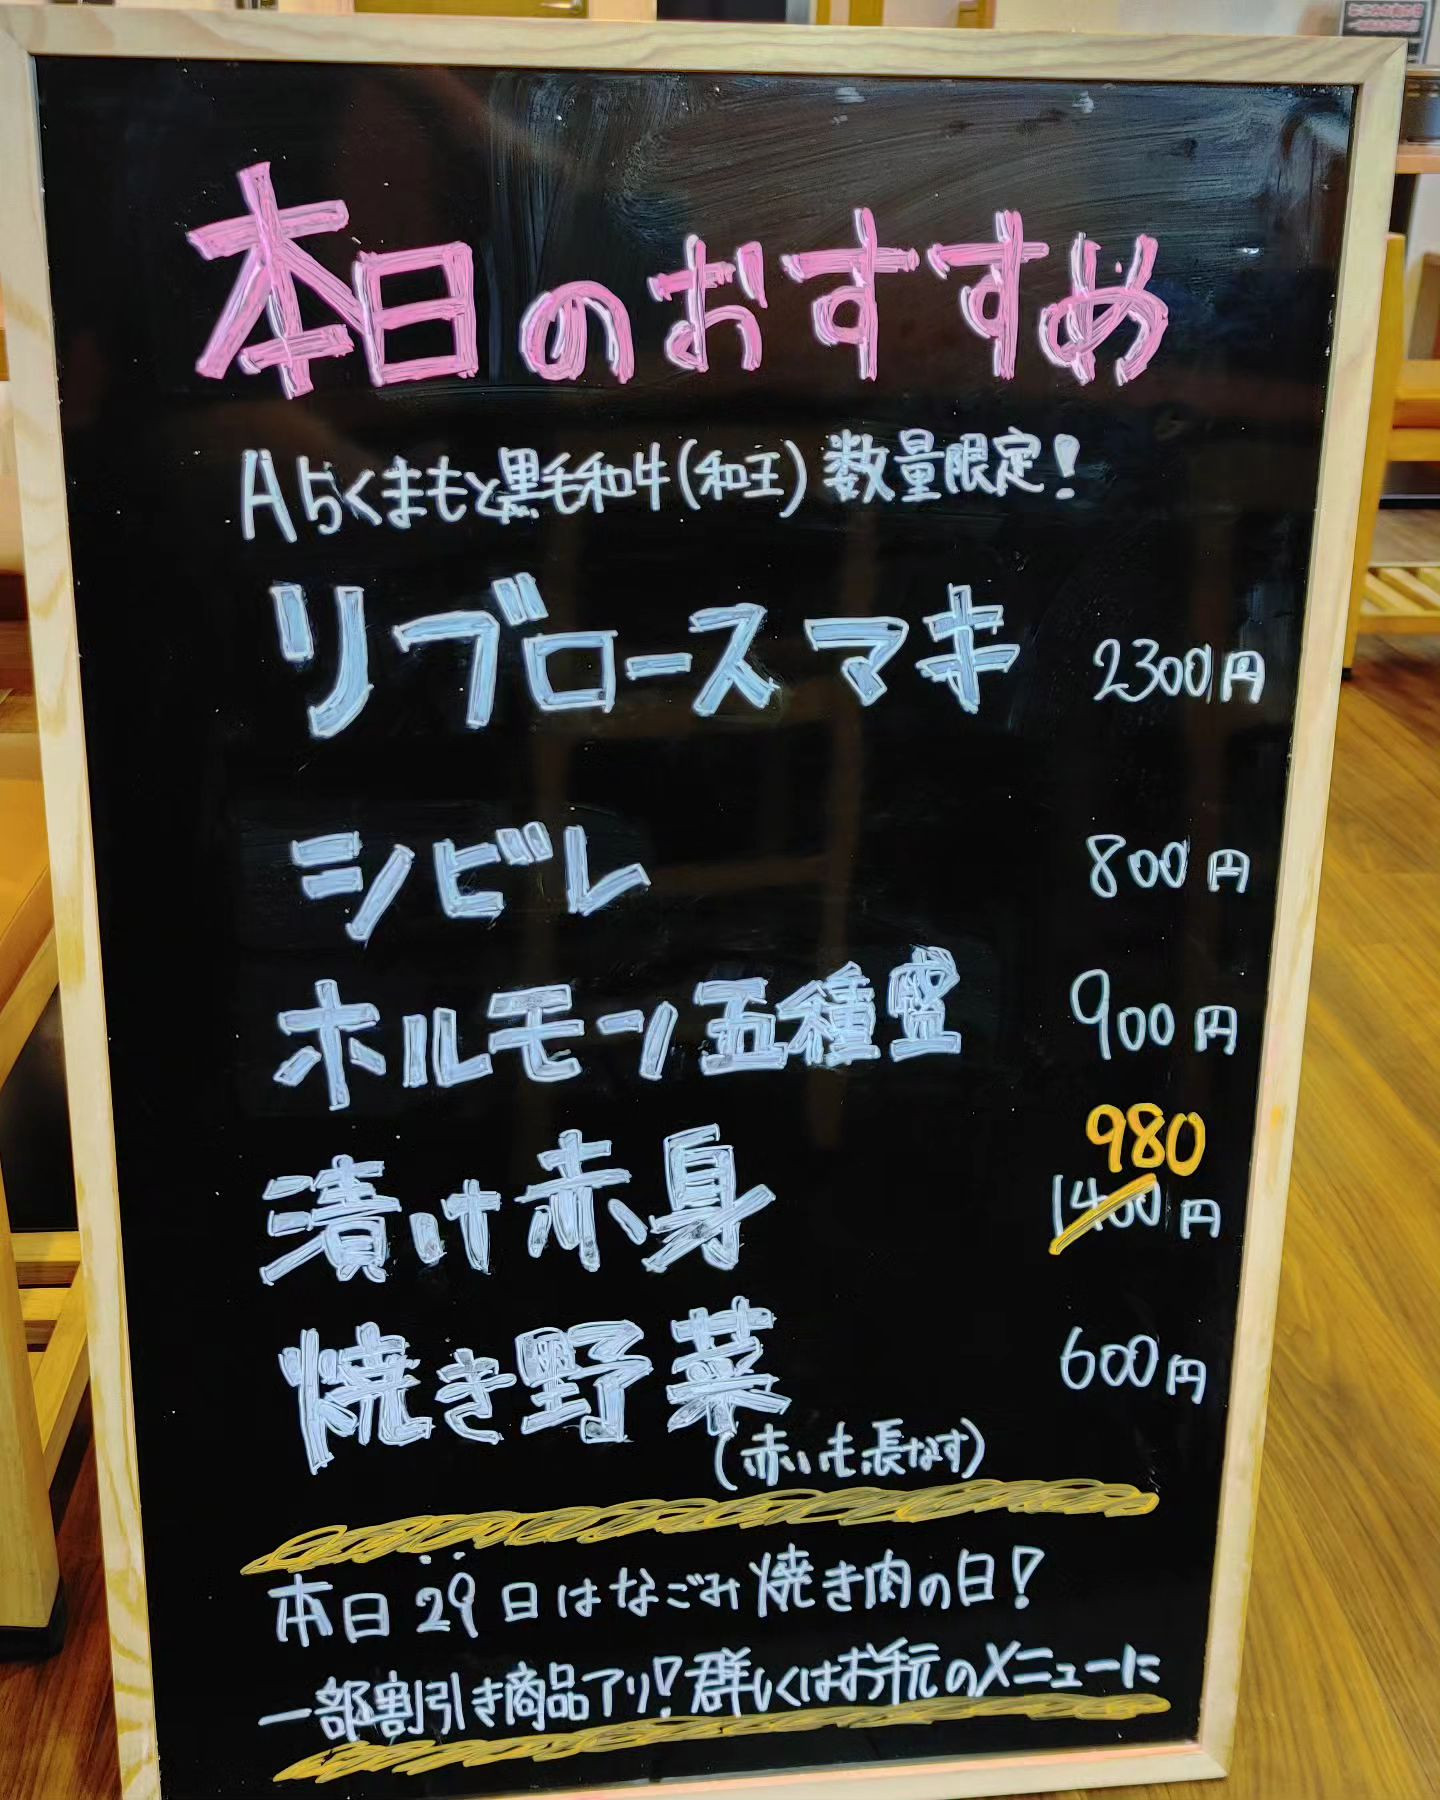 本日のおすすめ
A5くまもと黒毛和牛(和王) 数量限定!
リブロースマキ 2300円
シビレ 800円
ホルモン五種盛 900円
980
漬け赤身 1400円
焼き野菜 600円
(赤いも長なす)
本日29日はなごみ焼き肉の日!
一部割引き商品アリ!群しくはお手元のメニューに